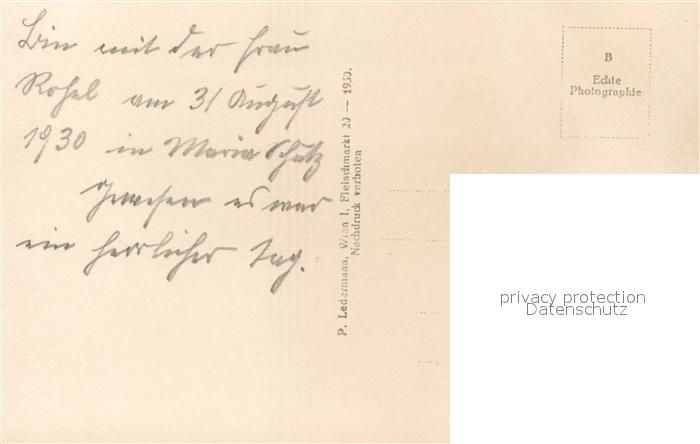 Bin mit der Frau
Rohel am 31 August
1930 in Maria Schutz
gewesen es war
ein herrlicher Tag.
P. Ledermann, Wien I, Fleischmarkt 20 — 1930.
Nachdruck verboten
B
Echte
Photographie
privacy protection
Datenschutz